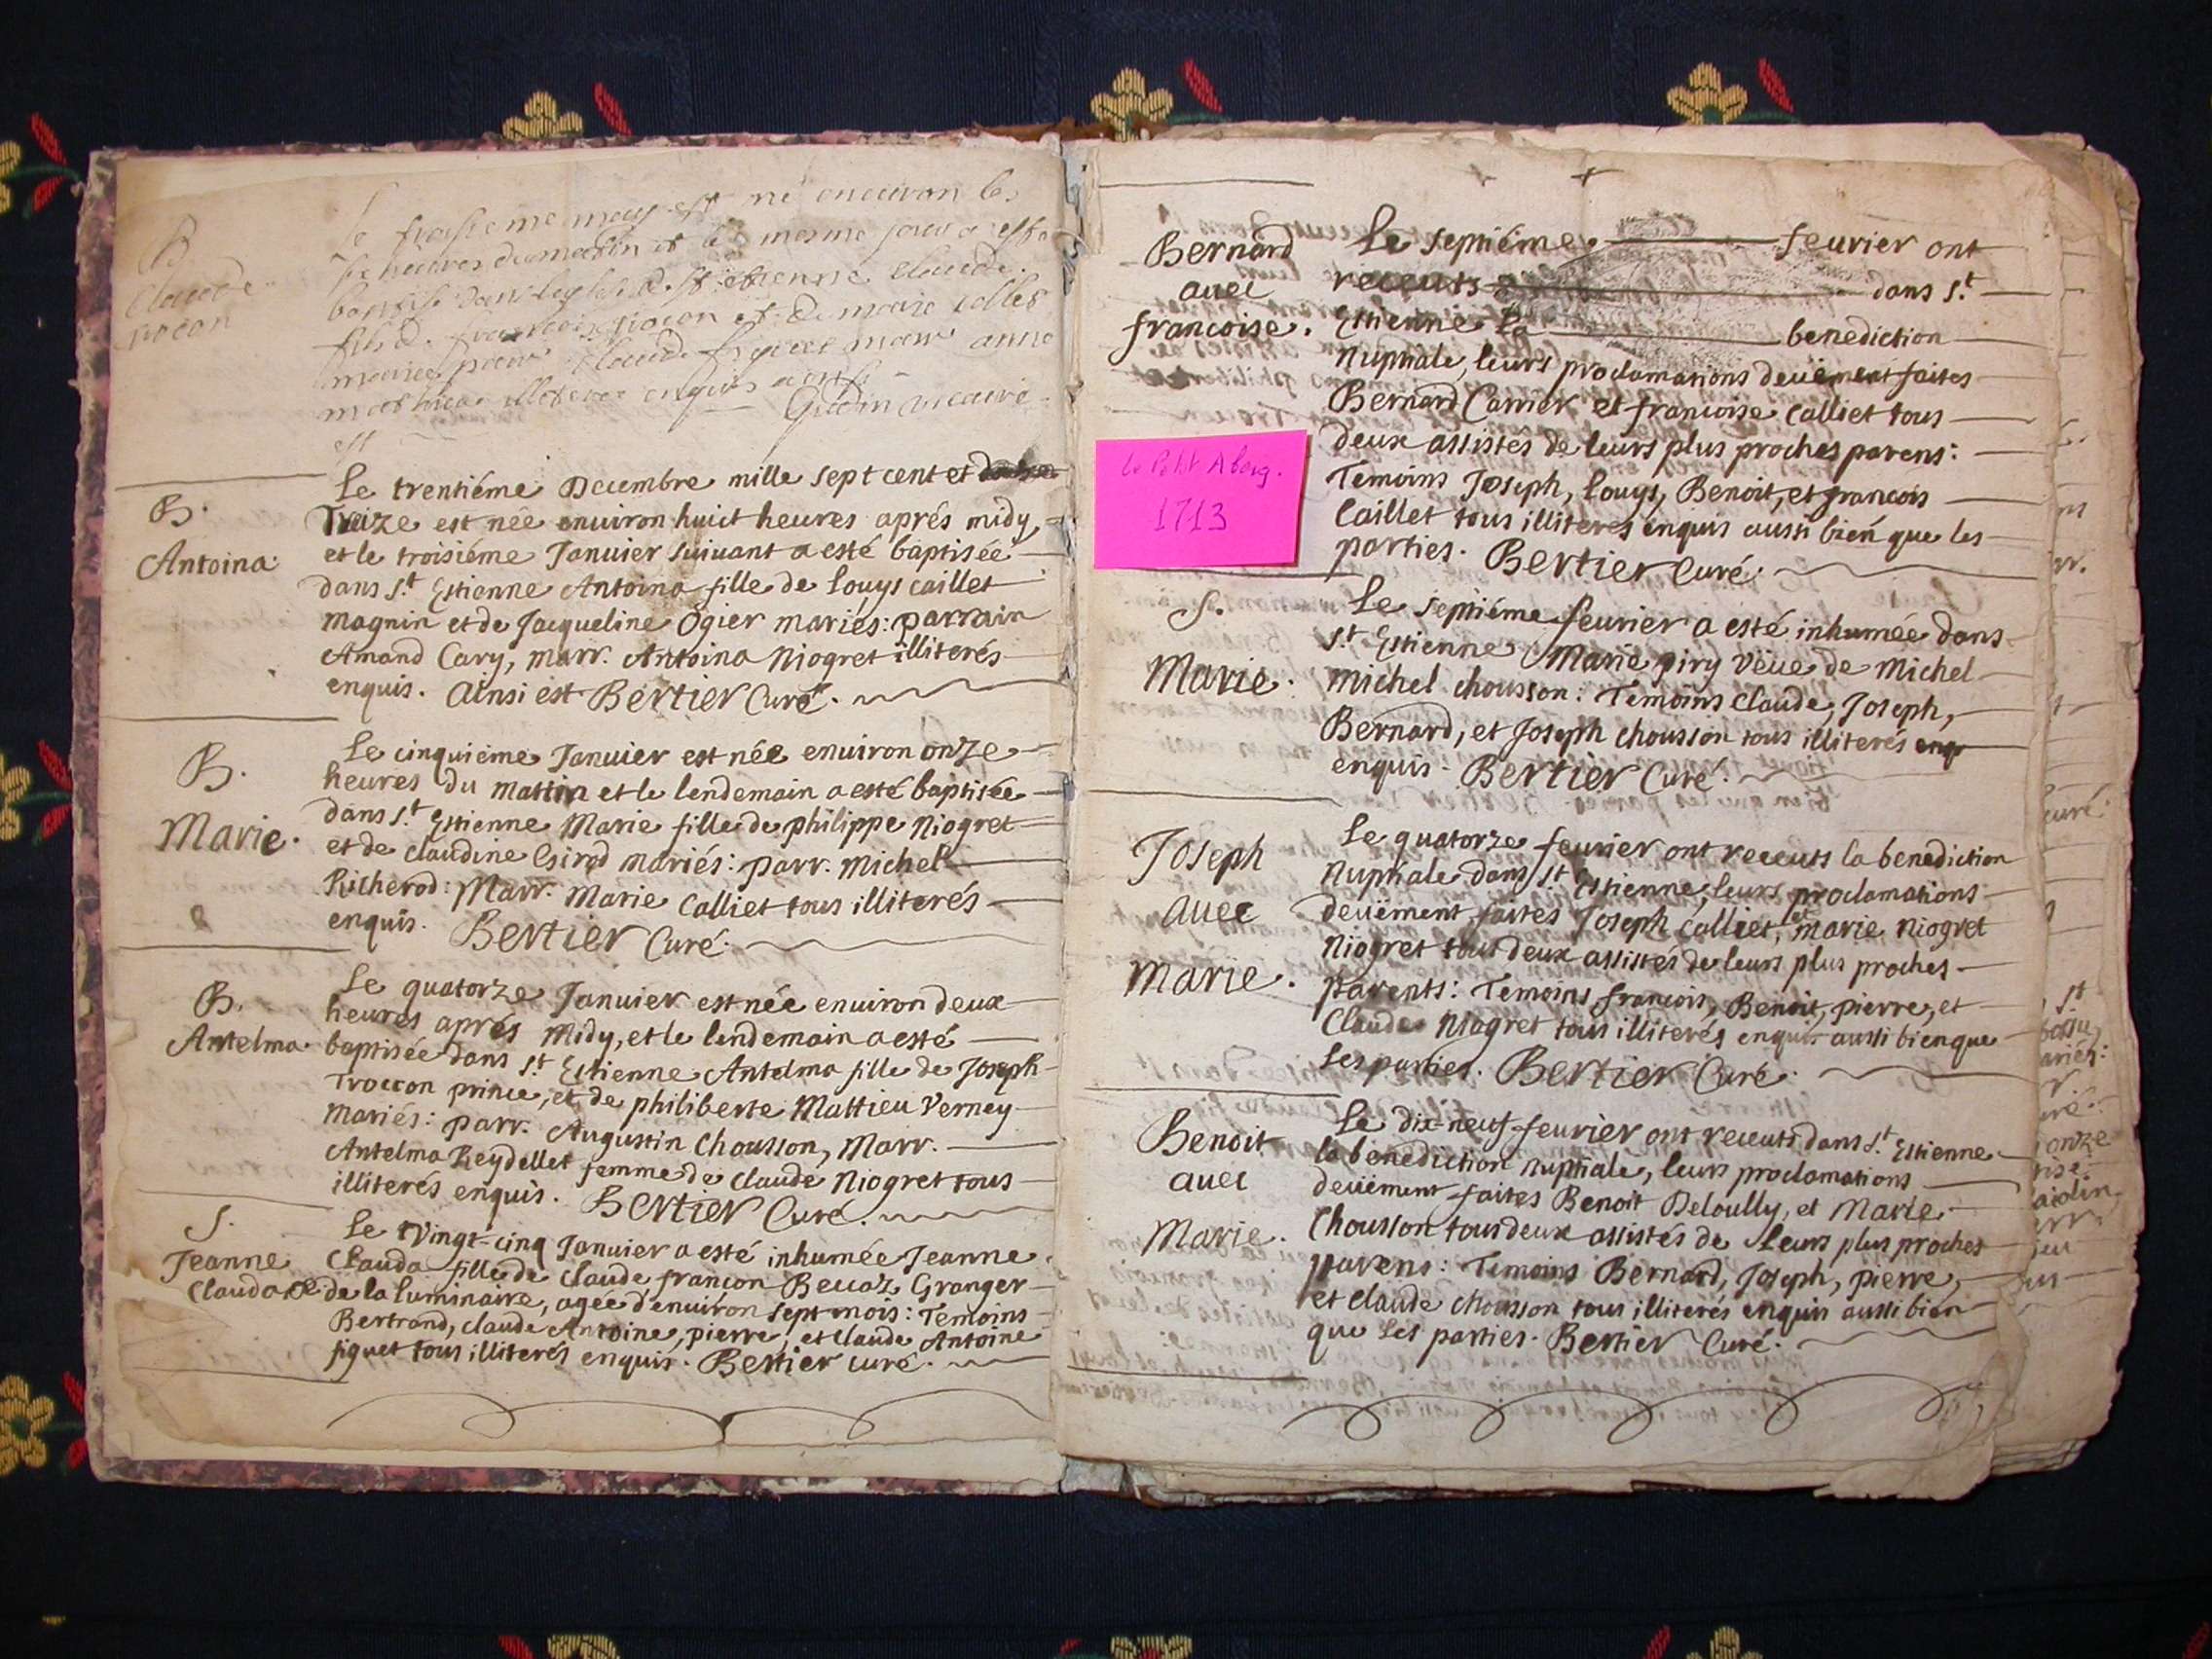 B
Claude
le troisieme may est né environ les
heures du matin et le mesme jour a esté
baptisé dans leglise de st estienne claude
fils de francois et de marie
mariés parr claude marr anne
illiteres enquis
vicaire
B.
Antoina
Le trentiéme Decembre mille sept cent et
Treize est née enuiron huict heures aprés midy,
et le troisiéme Januier suiuant a esté baptisée
dans S.t Estienne Antoina fille de louys caillet
magnin et de Jacqueline Ogier mariés: parrain
Amand Cary, marr. Antoina Niogret illiterés
enquis. Ainsi est Bertier Curé.
B.
Marie.
Le cinquiéme Januier est née enuiron onze
heures du mattin et le lendemain a esté baptisée
dans S.t Estienne Marie fille de philippe Niogret
et de claudine Girod mariés: parr. michel
Richerod: Marr. Marie Calliet tous illiterés
enquis. Bertier Curé.
B.
Antelma
Le quatorze Januier est née enuiron deux
heures aprés Midy, et le lendemain a esté
baptisée dans S.t Estienne Antelma fille de Joseph
Troccon prince, et de philiberte Mattieu Verney
mariés: parr. Augustin Chousson, Marr.
Antelma Reydellet femme de claude Niogret tous
illiterés enquis. Bertier Curé.
S.
Jeanne
Clauda
Le Vingt-cinq Januier a esté inhumée Jeanne
Clauda fille de claude francon Beccaz Granger
de la luminaire, agée d'enuiron sept mois: Temoins
Bertrand, claude Antoine, pierre, et claude Antoine
figuet tous illiterés enquis. Bertier curé.
Bernard
auec
francoise.
Le septiéme feurier ont
receuts dans S.t
Estienne la benediction
Nuptiale, leurs proclamations deüement faites
Bernard Carrier et francoise Calliet tous
deux assistés de leurs plus proches parens:
Temoins Joseph, louys, Benoit, et francois
Caillet tous illiterés enquis aussi bien que les
parties. Bertier Curé.
le Petit Aberg.
1713
S.
Marie.
Le septiéme feurier a esté inhumée dans
S.t Estienne Marie piry Veüe de Michel
michel chousson: Temoins Claude, Joseph,
Bernard, et Joseph chousson tous illiterés enq
enquis. Bertier Curé.
Joseph
auec
marie.
Le quatorze feurier ont receuts la benediction
Nuptiale dans S.t Estienne, leurs proclamations
deüement faites Joseph Calliet, et marie niogret
Niogret tous deux assistés de leurs plus proches
parents: Temoins francois, Benoit, pierre, et
Claude Niogret tous illiterés enquis aussi bien que
les parties. Bertier Curé.
Benoit
auec
Marie.
Le dix-neuf feurier ont receuts dans S.t Estienne
la benediction nuptiale, leurs proclamations
deüement faites Benoit Deloully, et Marie
Chousson tous deux assistés de leurs plus proches
parens: Temoins Bernard, Joseph, pierre,
et claude chousson tous illiterés enquis aussi bien
que les parties. Bertier Curé.